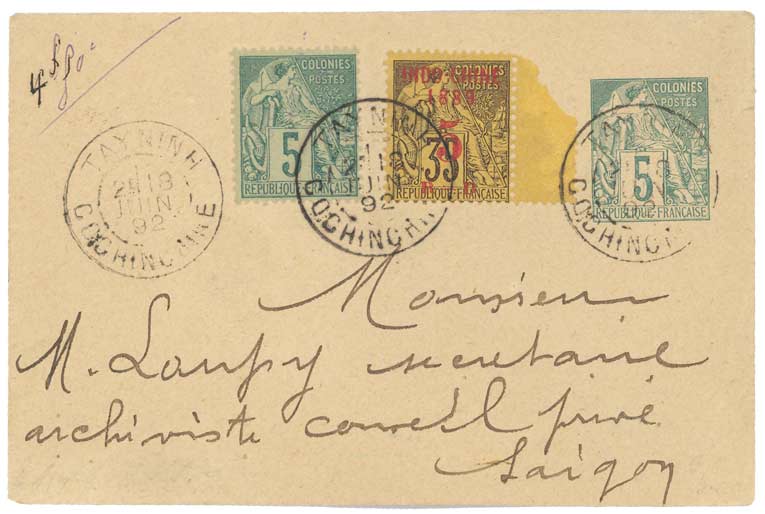 COLONIES
POSTES
5
RÉPUBLIQUE FRANÇAISE
COLONIES
POSTES
INDO-CHINE
1889
5
35
R D
RÉPUBLIQUE FRANÇAISE
COLONIES
POSTES
5
RÉPUBLIQUE FRANÇAISE
TAYNINH
2E 18
JUIN
92
COCHINCHINE
TAYNINH
2E 18
JUIN
92
COCHINCHINE
Monsieur
M. Loupy secretaire
archiviste conseil privé
Saigon